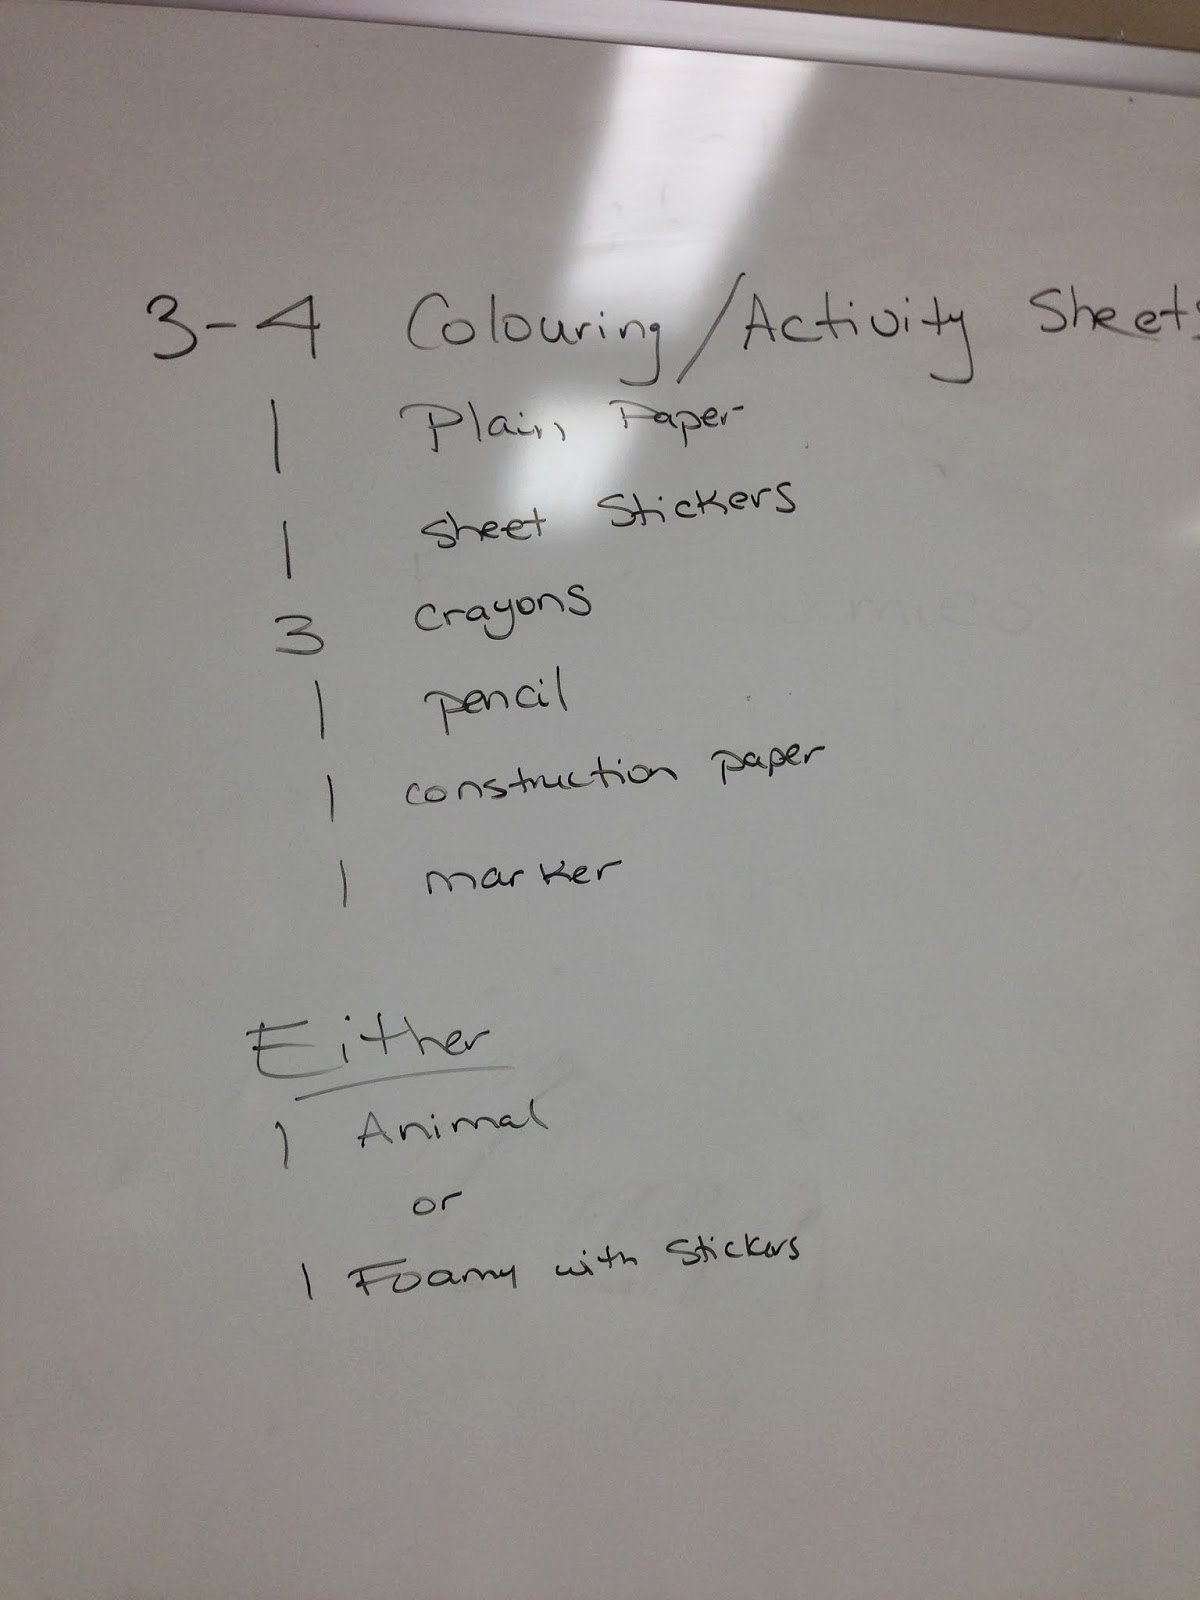 3-4 Colouring/Activity Sheets
1 Plain Paper
1 sheet Stickers
3 crayons
1 pencil
1 construction paper
1 marker
Either
1 Animal
or
1 Foamy with Stickers